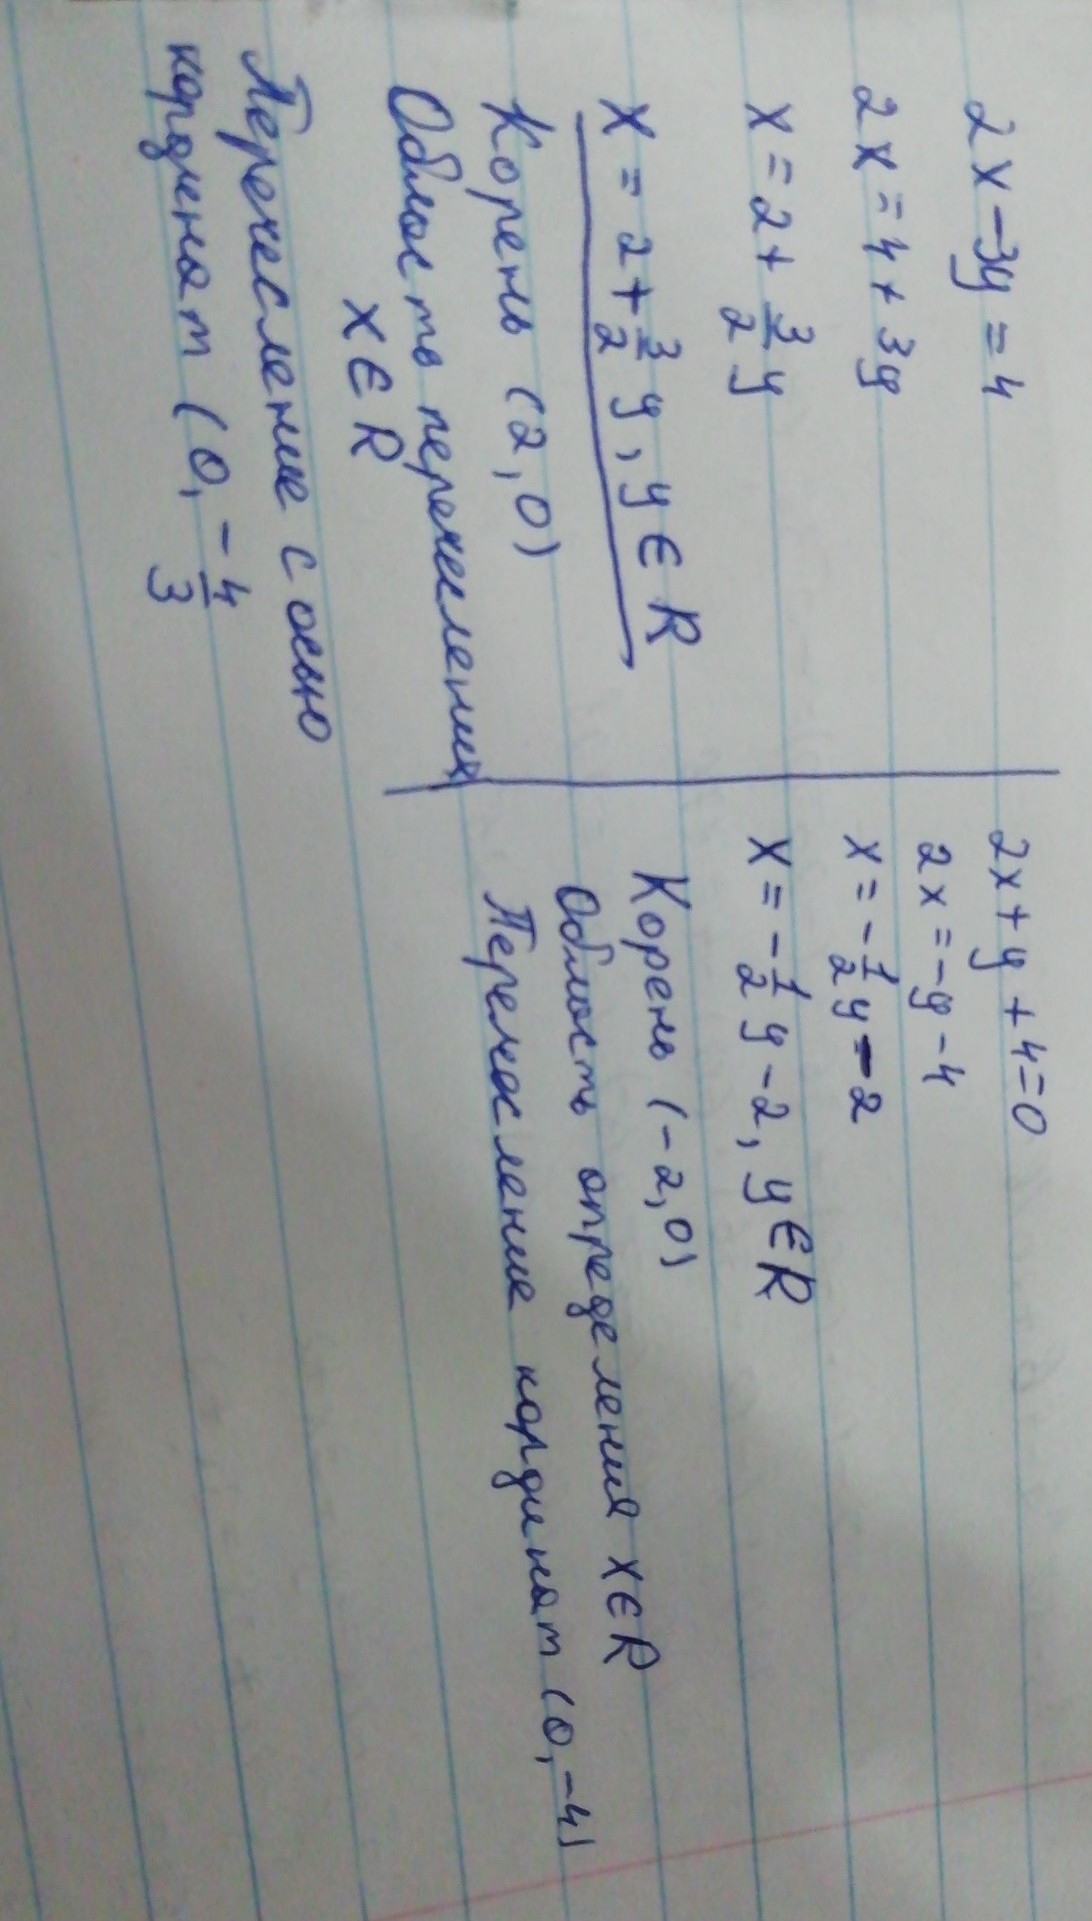 2x-3y=4
2x=4+3y
x=2+3/2 y
x=2+3/2 y, y∈R
Корень (2,0)
Область перечесления
x∈R
Перечесление с осью
кординат (0,-4/3
2x+y+4=0
2x=-y-4
x=-1/2 y-2
x=-1/2 y-2, y∈R
Корень (-2,0)
Область определения x∈R
Перечесление кординат (0,-4)